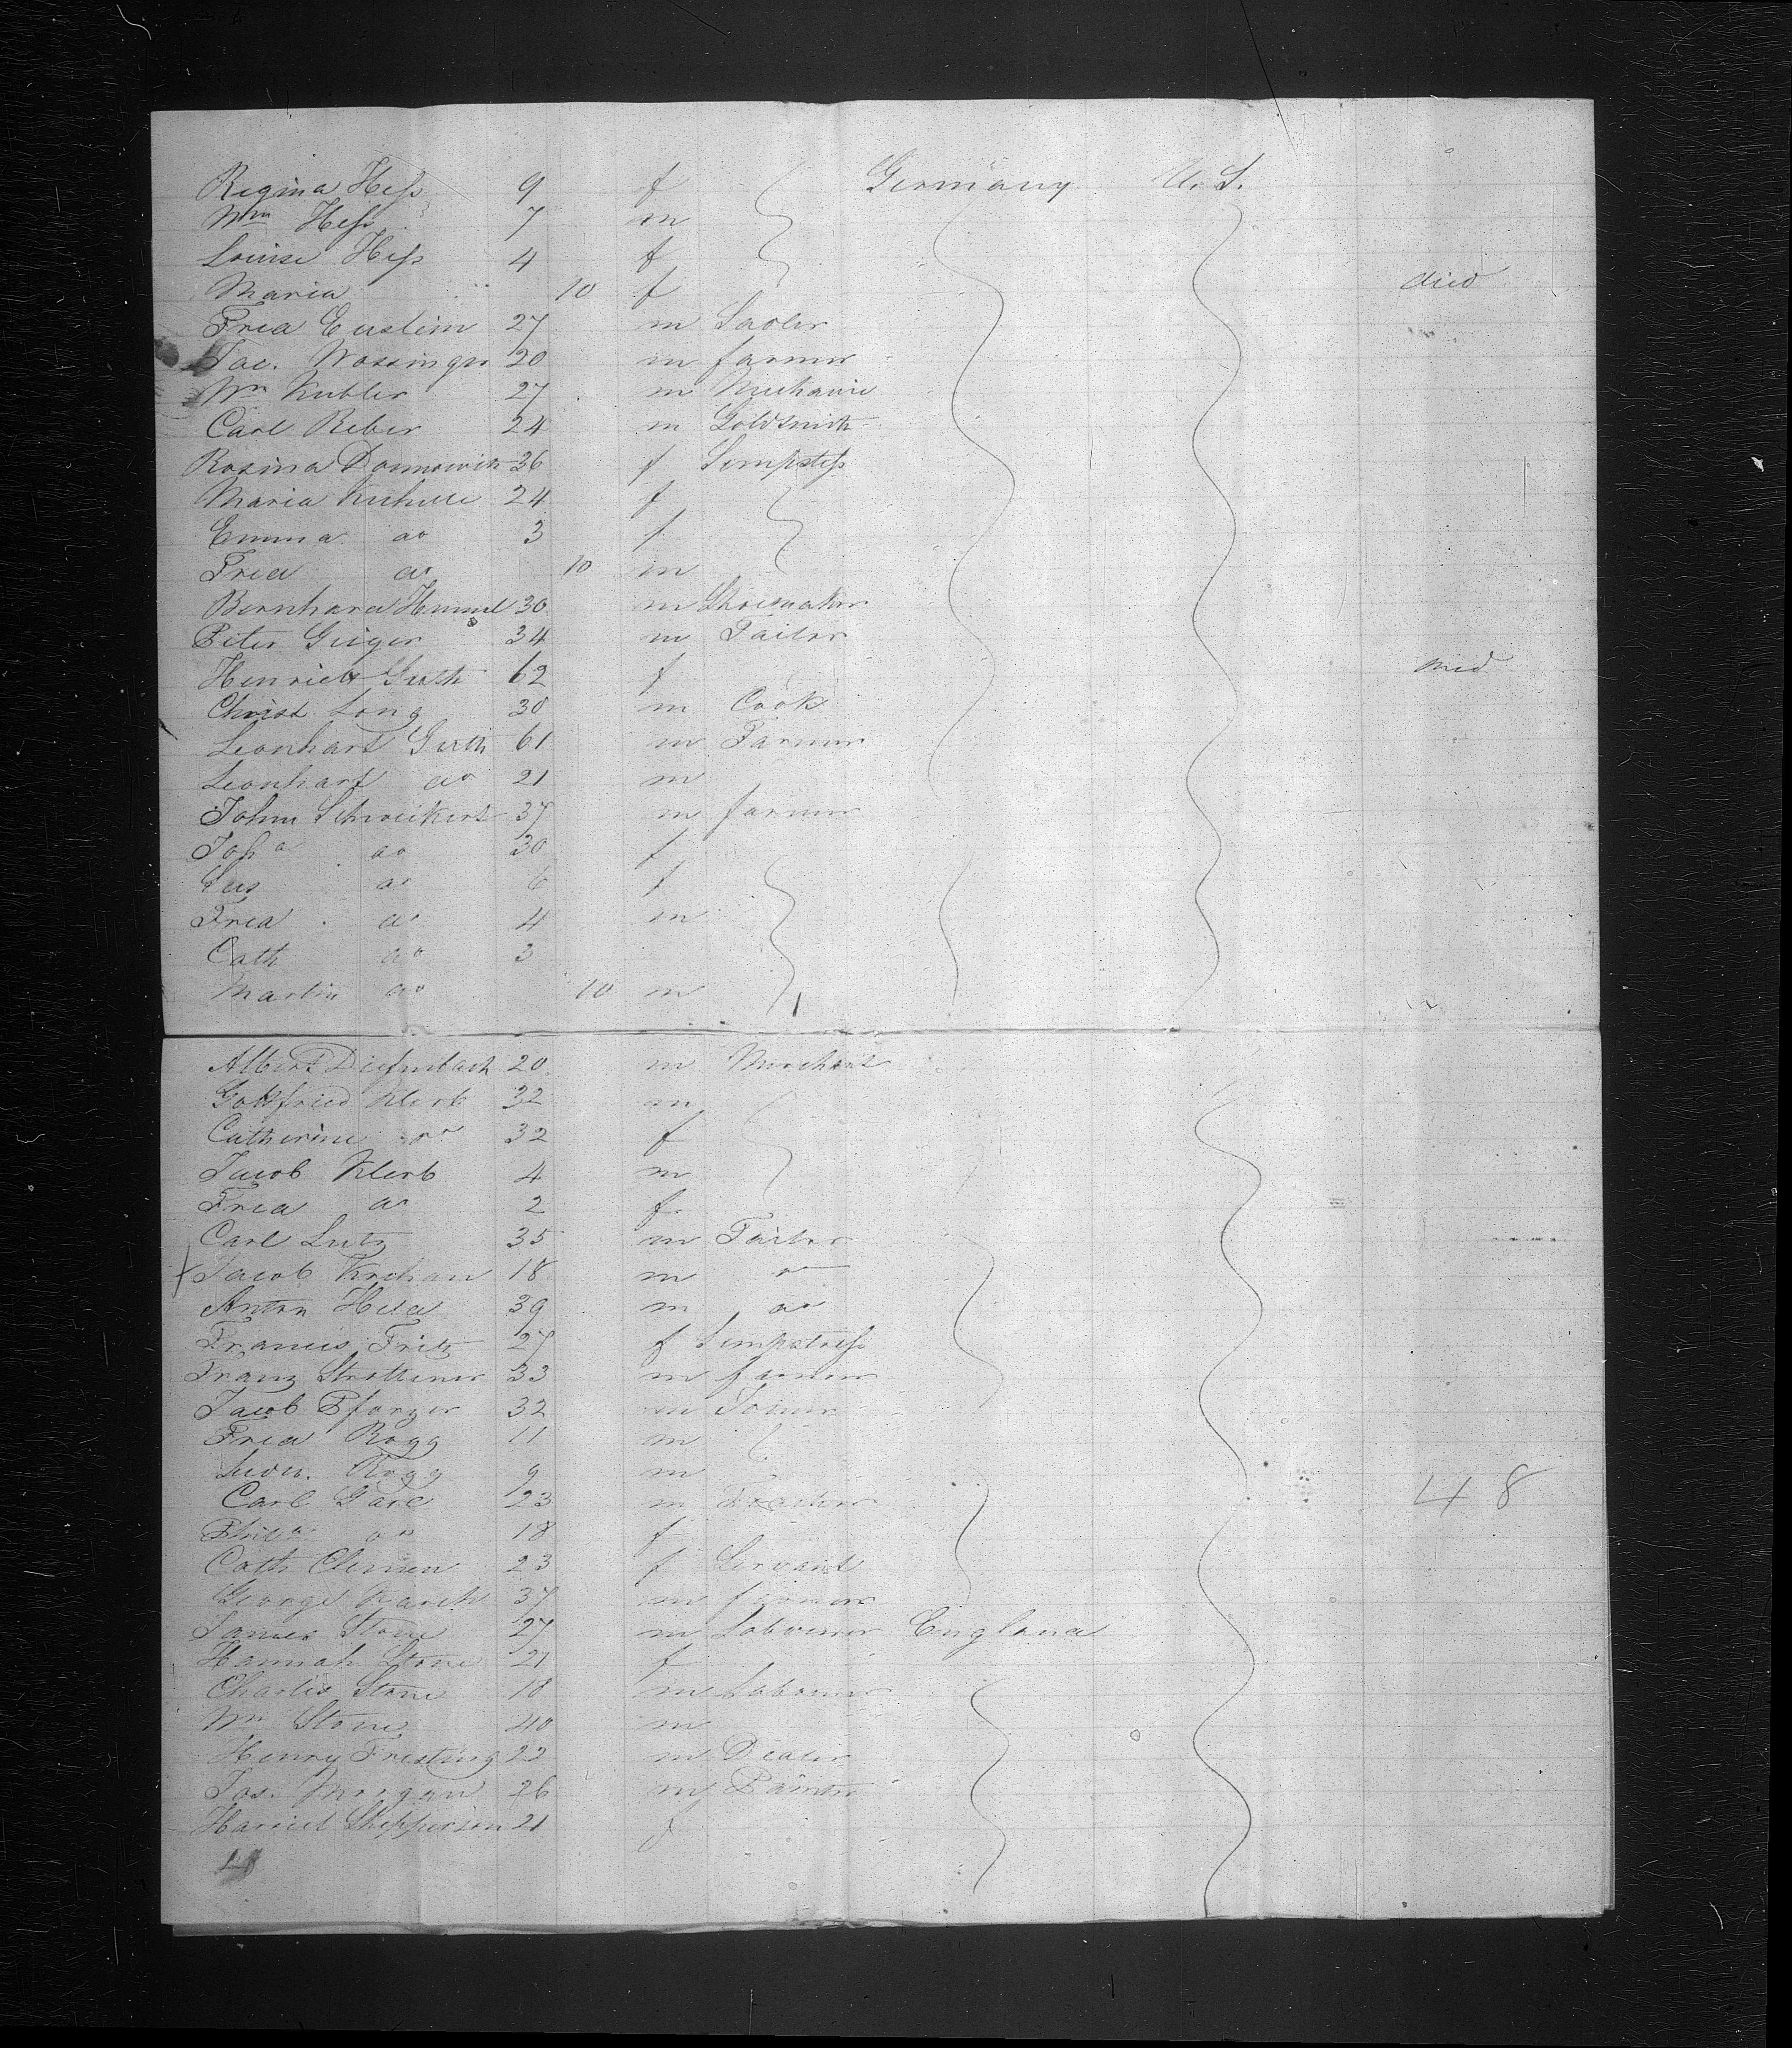 Regina Hess 9 f Germany U.S.
Wm Hess 7 m
Louise Hess 4 f
Maria " 10 f died
Fred Euslein 27 m Sadler
Jac. Wossinger 20 m farmer
Wm Kubler 27 m Mechanic
Carl Reber 24 m Goldsmith
Rosina 36 f Sempstess
Maria 24 f
Emma do 3 f
Fred do 10 m
Bernhard Hummel 30 m Shoemaker
Peter Geiger 34 m Tailor
Henriett Guth 62 f died
Christ Long 30 m Cook
Leonhart Guth 61 m Farmer
Leonhart do 21 m
John Schweikert 37 m farmer
do 30 f
do 6 f
Fred do 4 m
Cath do 3
Martin do 10 m
Albert Diefenbach 20 m Merchant
Gottfried Klerb 32 m
Catherine do 32 f
Jacob Klerb 4 m
Fred do 2 f
Carl Lutz 35 m Tailor
Jacob 18 m do
Anton Held 39 m do
Francis Fritz 27 f Sempstress
Franz 33 m farmer
Jacob Pforzer 32 m Joiner
Fred Rogg 11 m
Rogg 9 m
Carl 23 m 48
do 18 f
Cath 23 f Servant
George Karch 37 m farmer
James Stone 27 m Labourer England
Hannah Stone 21 f
Charles Stone 18 m Labourer
Wm Stone 40 m
Henry 22 m Dealer
Jos. Morgan 26 m Painter
Harriet Shepperson 21 f
48